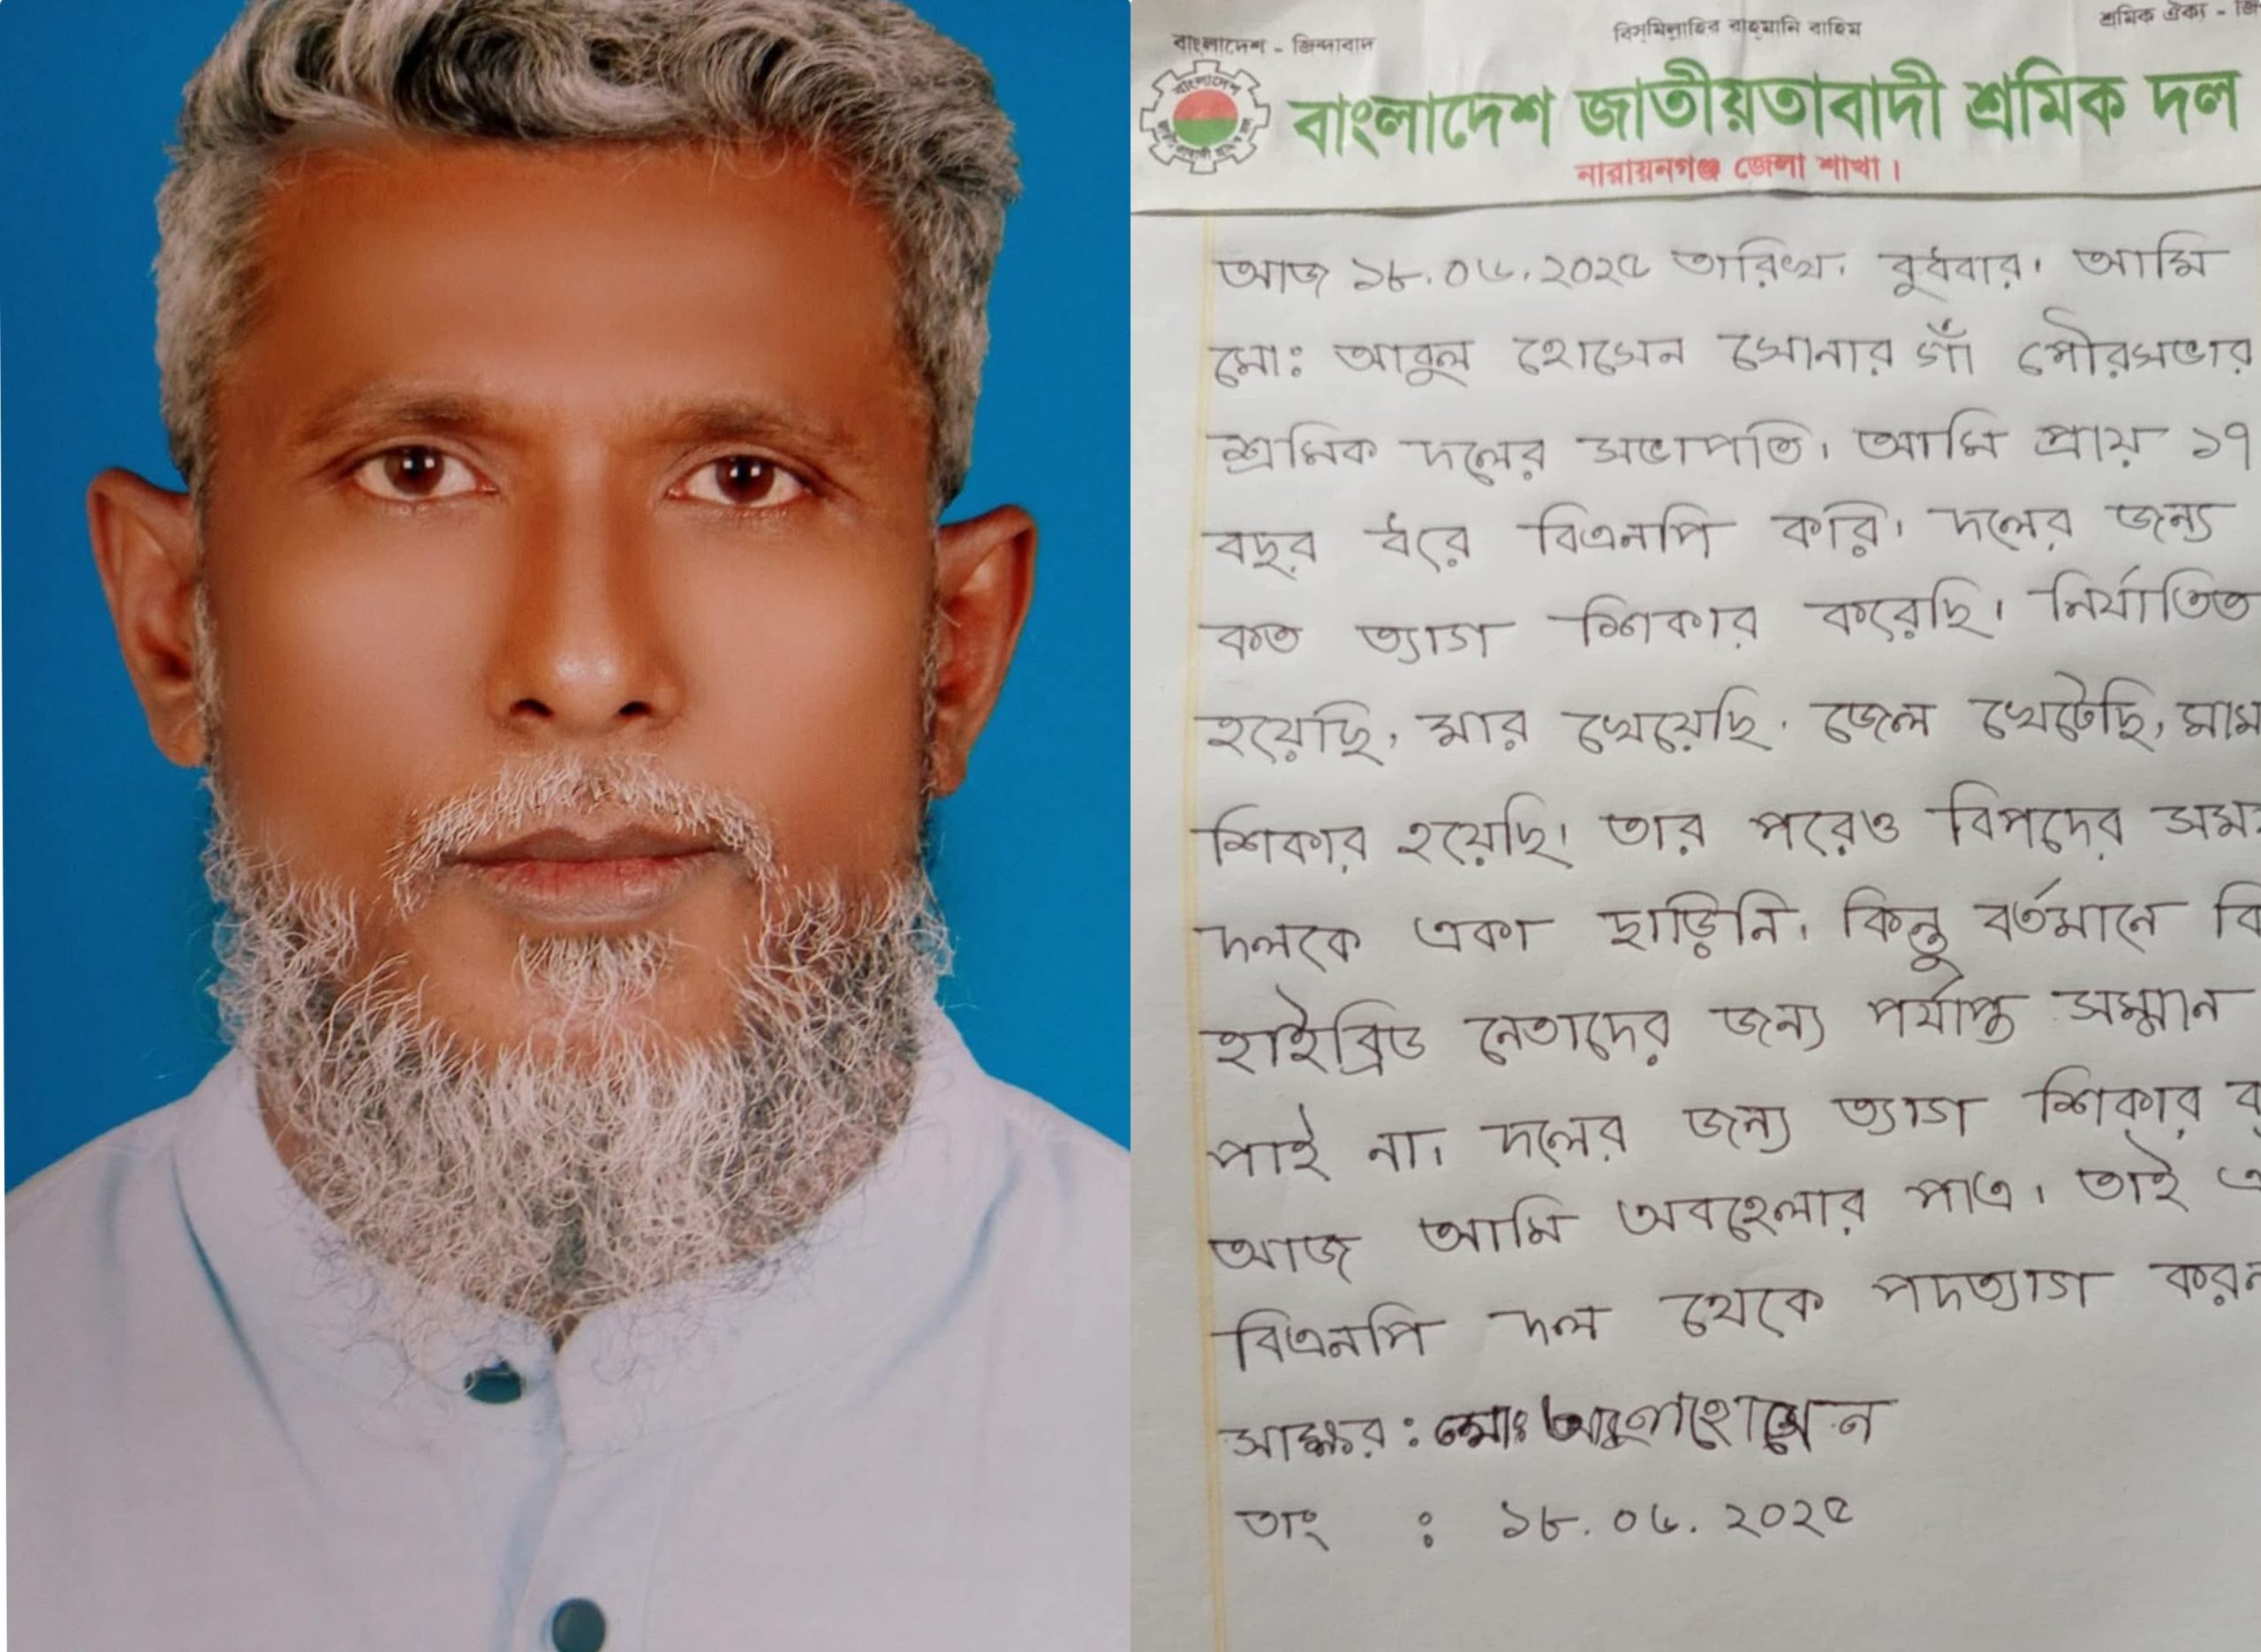 বাংলাদেশ - জিন্দাবাদ
বিসমিল্লাহির রাহমানি রাহিম
শ্রমিক ঐক্য - জি
বাংলাদেশ জাতীয়তাবাদী শ্রমিক দল
নারায়নগঞ্জ জেলা শাখা।
আজ ১৮.০৬.২০২৫ তারিখ। বুধবার। আমি
মোঃ আবুল হোসেন সোনারগাঁ পৌরসভার
শ্রমিক দলের সভাপতি। আমি প্রায় ১৭
বছর ধরে বিএনপি করি। দলের জন্য
কত ত্যাগ শিকার করেছি। নির্যাতিত
হয়েছি, মার খেয়েছি, জেল খেটেছি, মাম
শিকার হয়েছি। তার পরেও বিপদের সময়
দলকে একা ছাড়িনি। কিন্তু বর্তমানে বি
হাইব্রিড নেতাদের জন্য পর্যাপ্ত সম্মান
পাই না। দলের জন্য ত্যাগ শিকার ক
আজ আমি অবহেলার পাত্র। তাই এ
বিএনপি দল থেকে পদত্যাগ করল
সাক্ষর : মোঃ আবুল হোসেন
তাং : ১৮.০৬.২০২৫